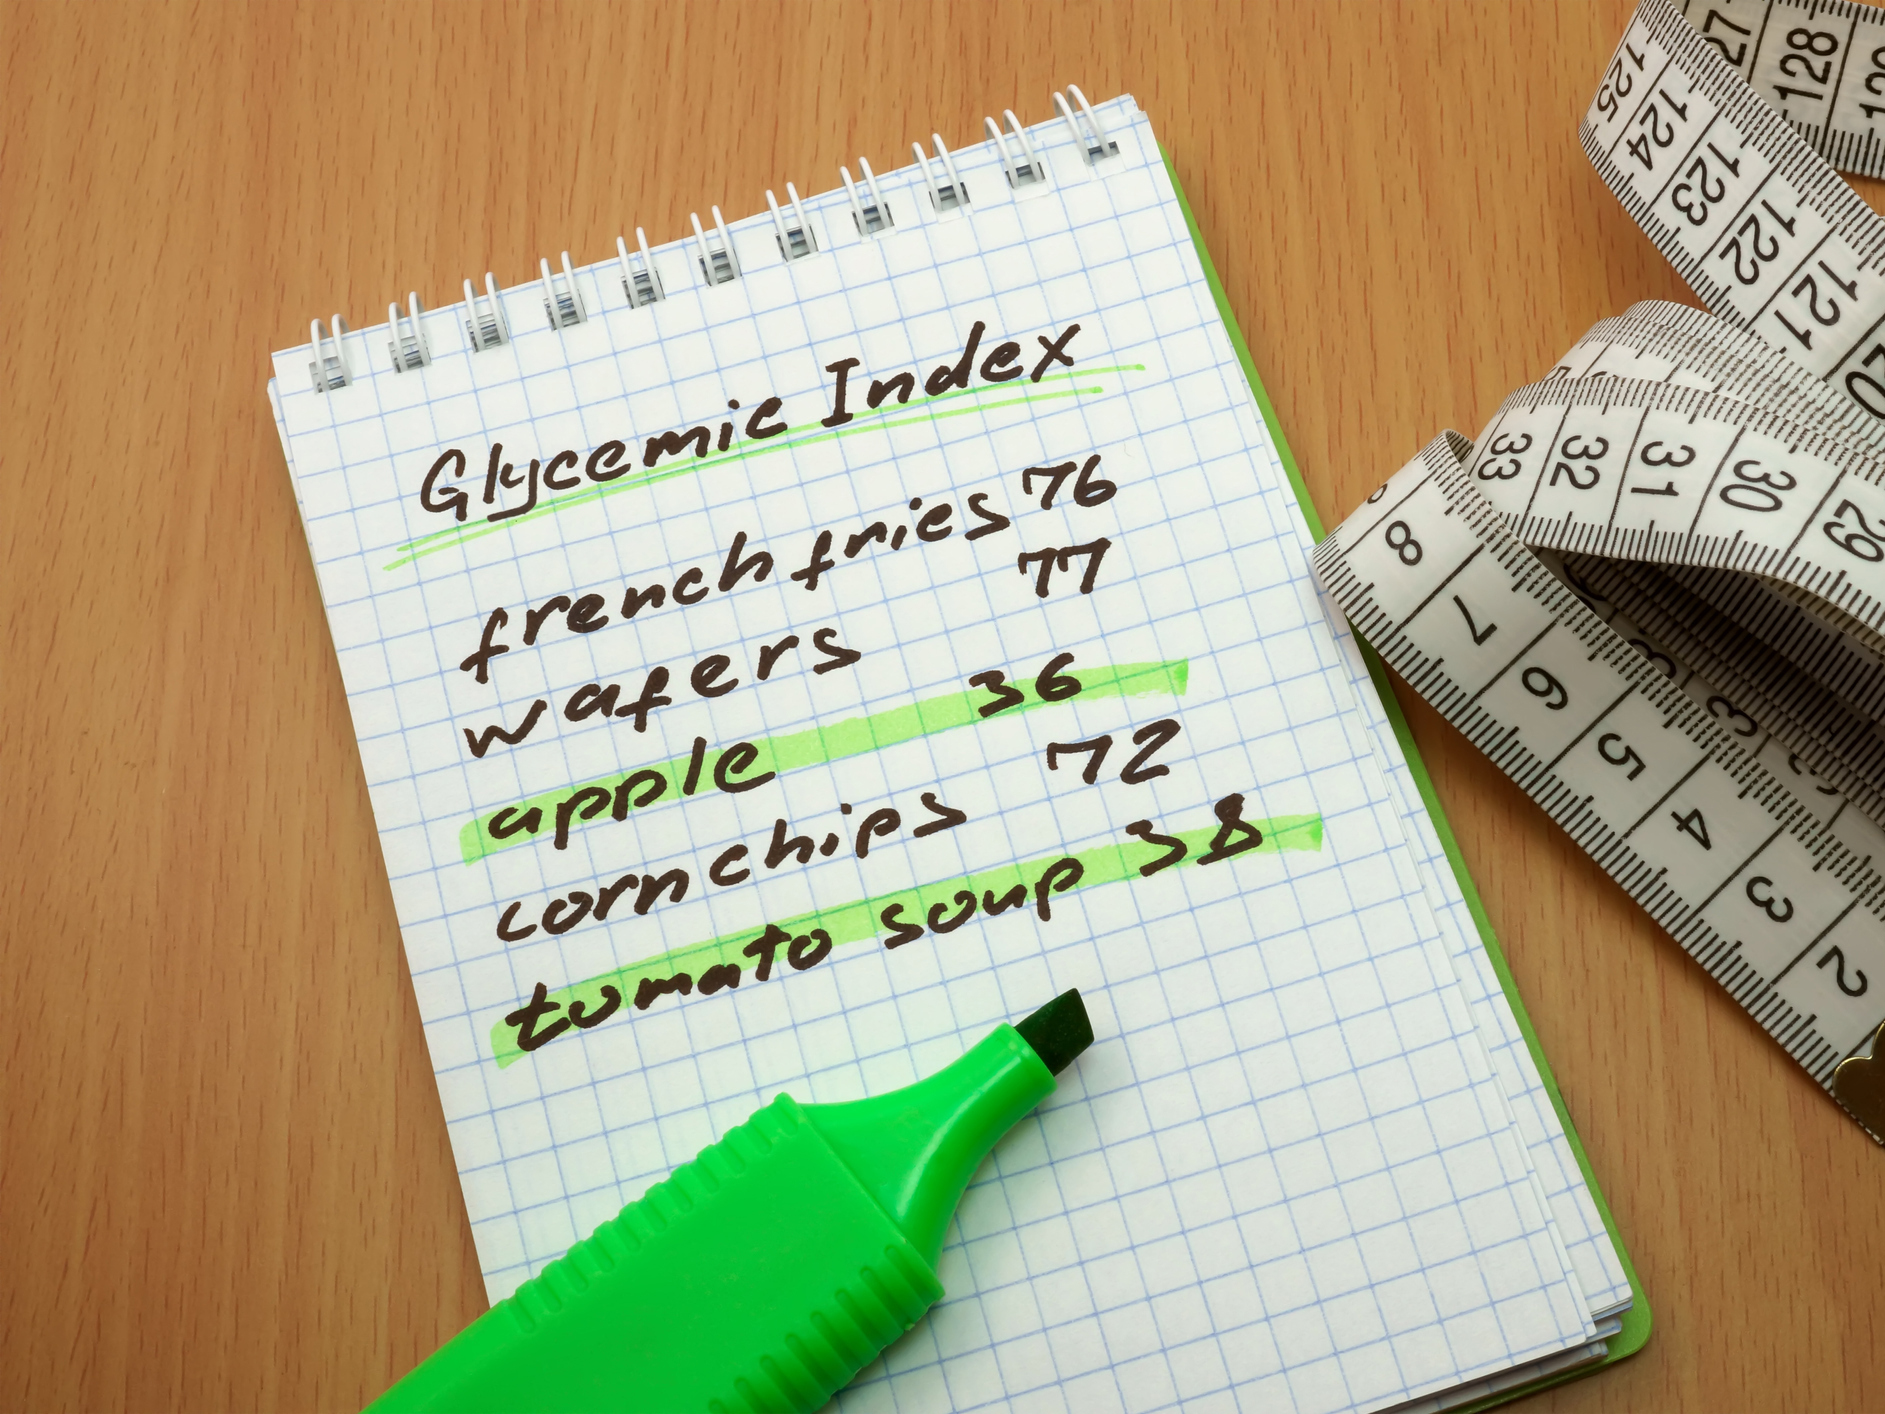 Glycemic Index
french fries 76
wafers 77
apple 36
corn chips 72
tomato soup 38
27 128
125 124 123 122 121 20
33 32 31 30 29
8 7 6 5 4 3 2